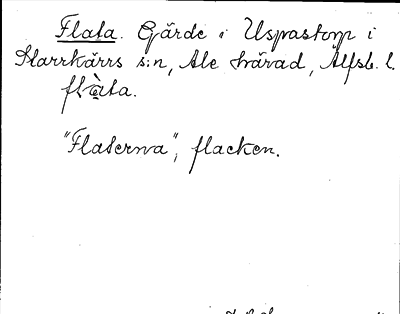 Flata. Gärde i Uspastorp i
Starrkärrs s:n, Ale härad, Älfsb. l.
flàta.
"Flaterna", flacken.